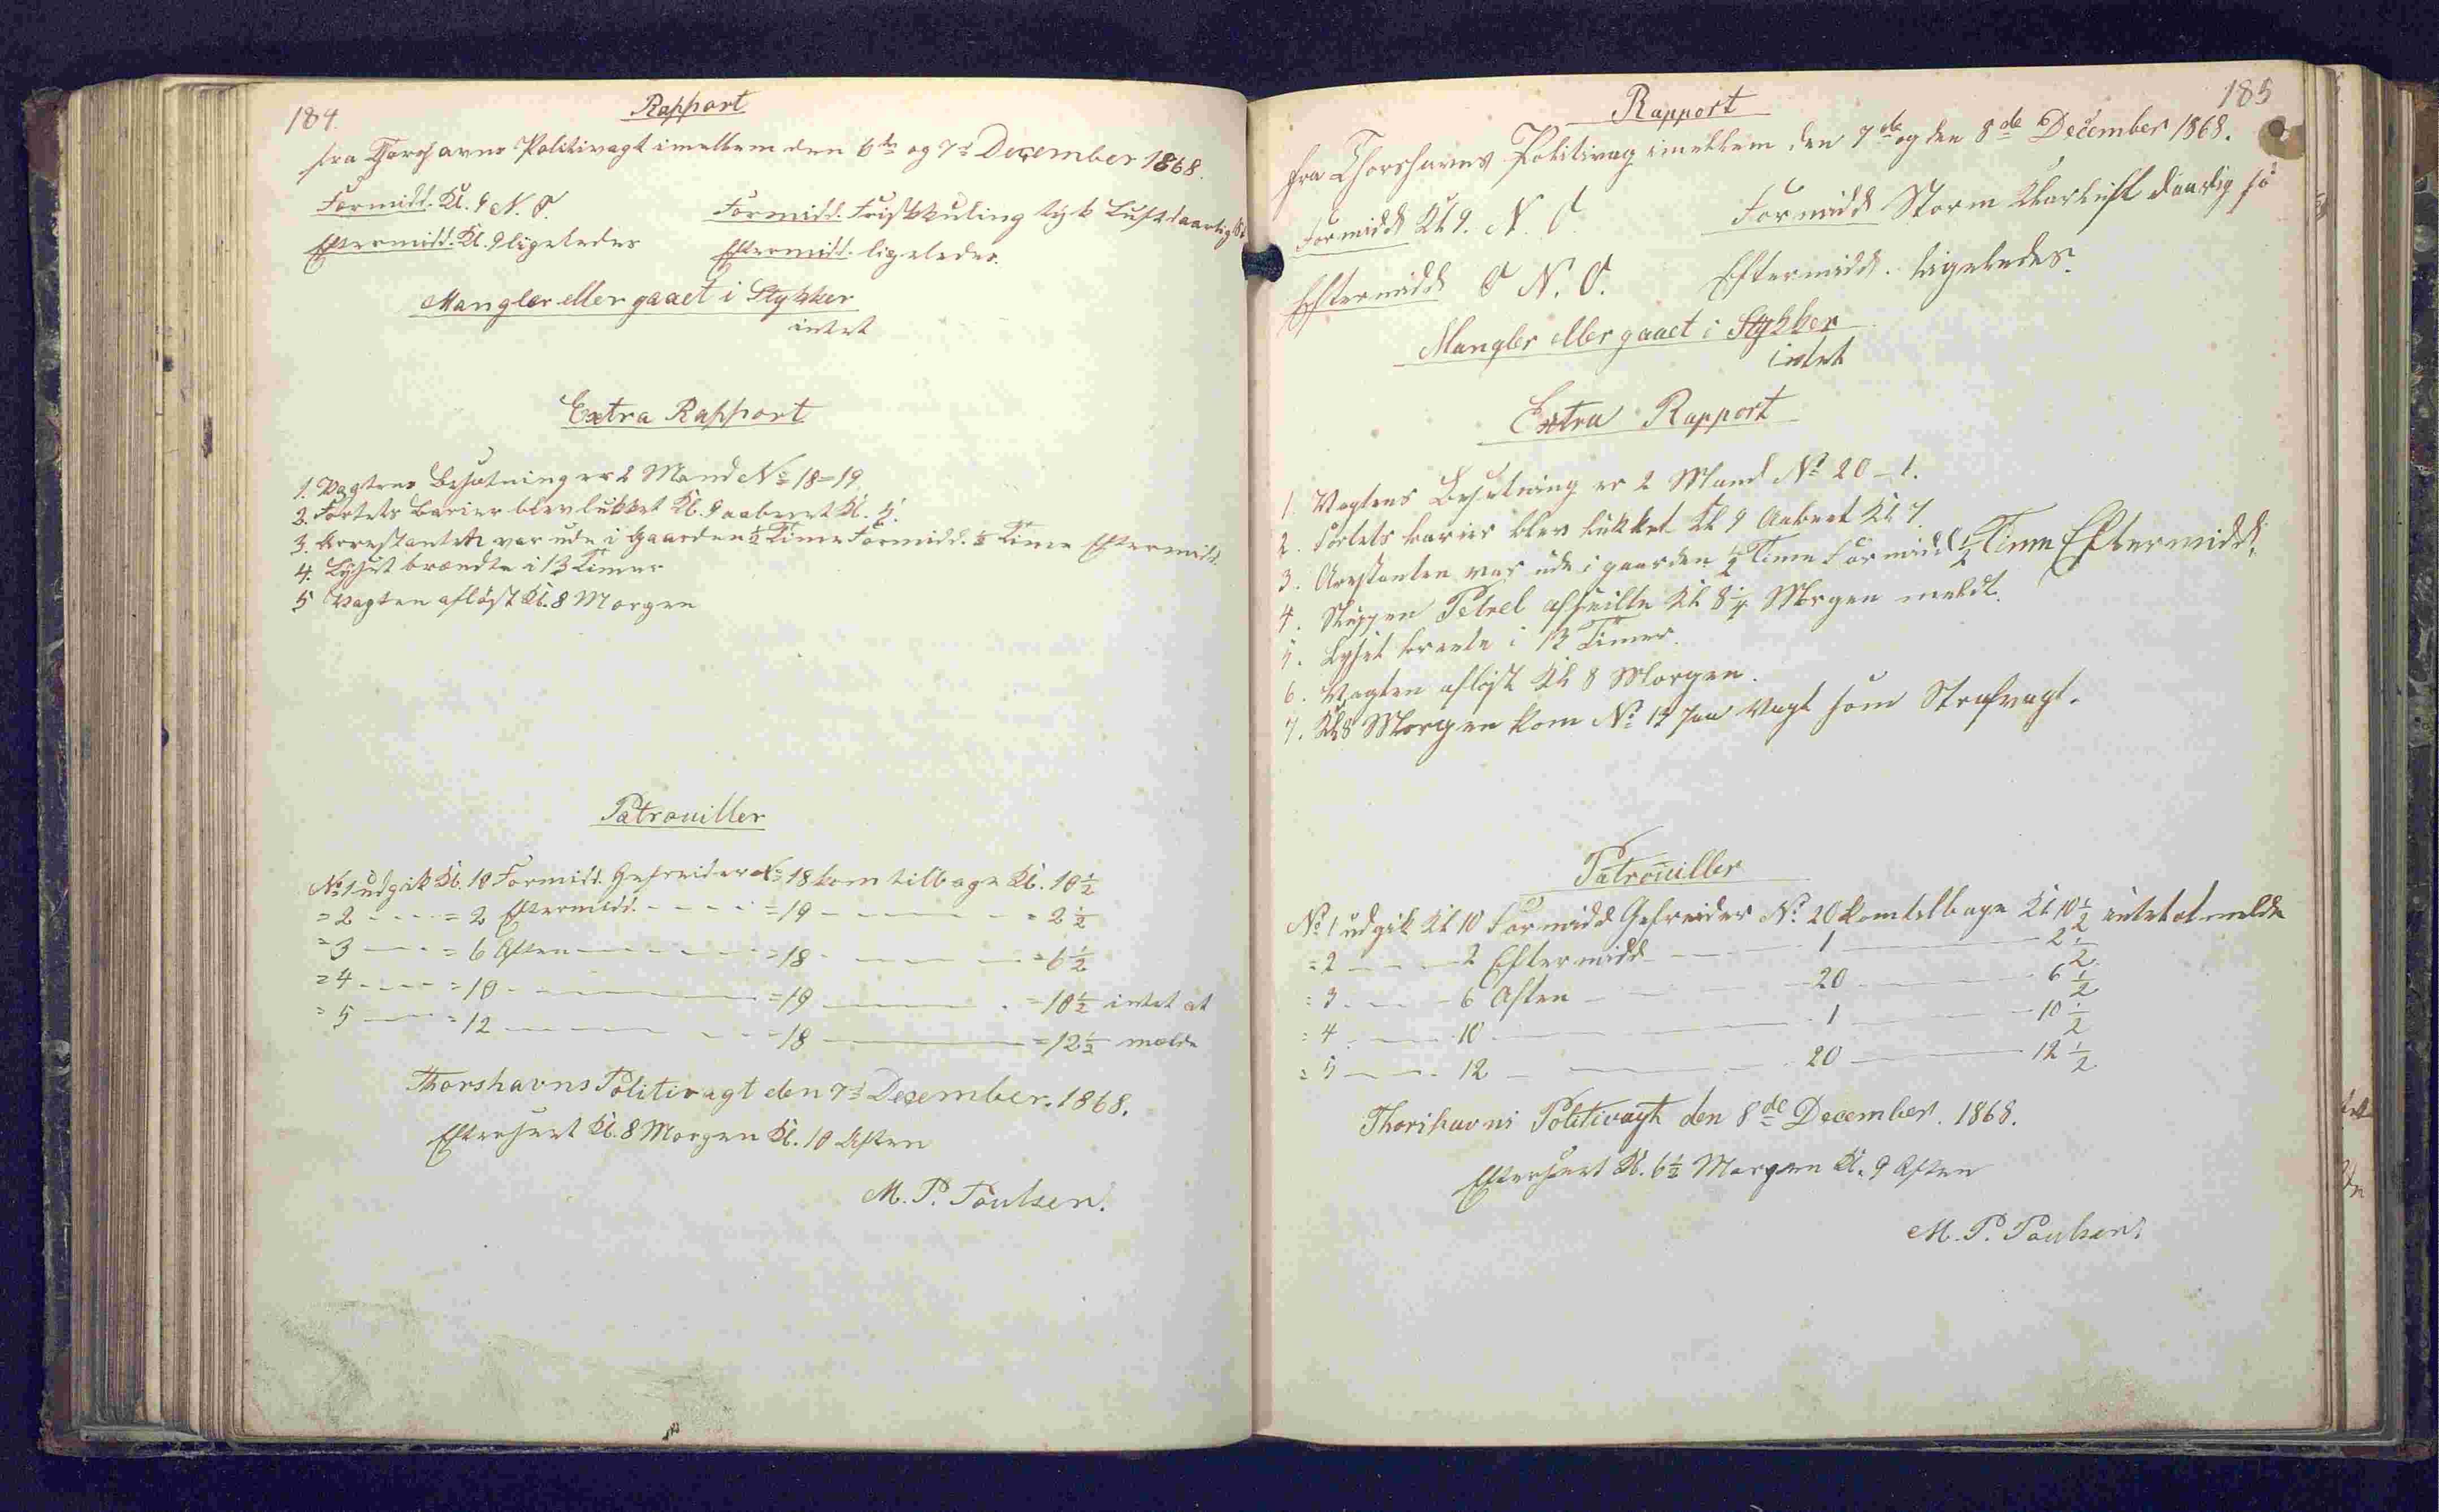 184.
Rapport
fra Thorshavns Politivagt imellem den 6te og 7d December 1868.
Formidd. Kl. 9 N. O. Formidd. Friskkuling tyk Luft daarlig Sö
Eftermidd. Kl. 9 ligeledes Eftermidd. ligeledes.
Mangler eller gaaet i Stykker
intet
Extra Rapport
1. Vagtens Besætning er 2 Mand No 18=19
2. Fortets Barier blev lukket Kl. 9 aabnet Kl. 7.
3. Arrestanten var ude i Gaarden ½ Time Formidd. ½ Time Eftermidd.
4. Lyset brændte i 13 Timer
5 Vagten aflöst Kl. 8 Morgen
Patrouiller
No 1 udgik Kl. 10 Formidd. Gefreider No 18 kom tilbage Kl. 10½
=2 - - - = 2 Eftermidd. - - - =19 - - - = 2½
=3 - - - = 6 Aften - - - =18 - - - =6½
=4 - - - =10 - - - =19 - - - =10½ intet at
=5 - - - =12 - - - =18 - - - =12½ melde
Thorshavns Politivagt den 7d December. 1868.
Efterseet Kl. 8 Morgen Kl. 10 Aften
M. P. Poulsen.
185
Rapport
fra Thorshavns Politivag imellem den 7de og den 8de December 1868.
Formidd Kl 9. N. O. Formidd Storm Klarluft daarlig sö
Eftermidd O N. O. Eftermidd. ligeledes.
Mangler eller gaaet i Stykker
intet
Extra Rapport
1. Vagtens Besetning er 2 Mand No 20 - 1.
2. Fortets barier blev lukket Kl 9 Aabnet Kl 7.
3. Arestanten var ude i gaarden ½ Time Formidd ½ Time Eftermidd.
4. Skippen Petrel afseilte Kl 8¼ Morgen meldt.
5. Lyset brente i 13 Timer.
6. Vagten aflöst Kl 8 Morgen.
7. Kl 8 Morgen kom No 13 paa Vagt som Strafvagt.
Patrouiller
No 1 udgik Kl 10 Formidd Gefreider No. 20 kom tilbage Kl 10½ intet at melde
=2 - - - 2 Eftermidd - - - 1 - - - 2½
=3 - - - 6 Aften - - - 20 - - - 6½
=4 - - - 10 - - - 1 - - - 10½
=5 - - - 12 - - - 20 - - - 12½
Thorshavns Politivagt den 8de December. 1868.
Efterseet Kl. 6½ Morgen Kl. 9 Aften
M. P. Poulsen.